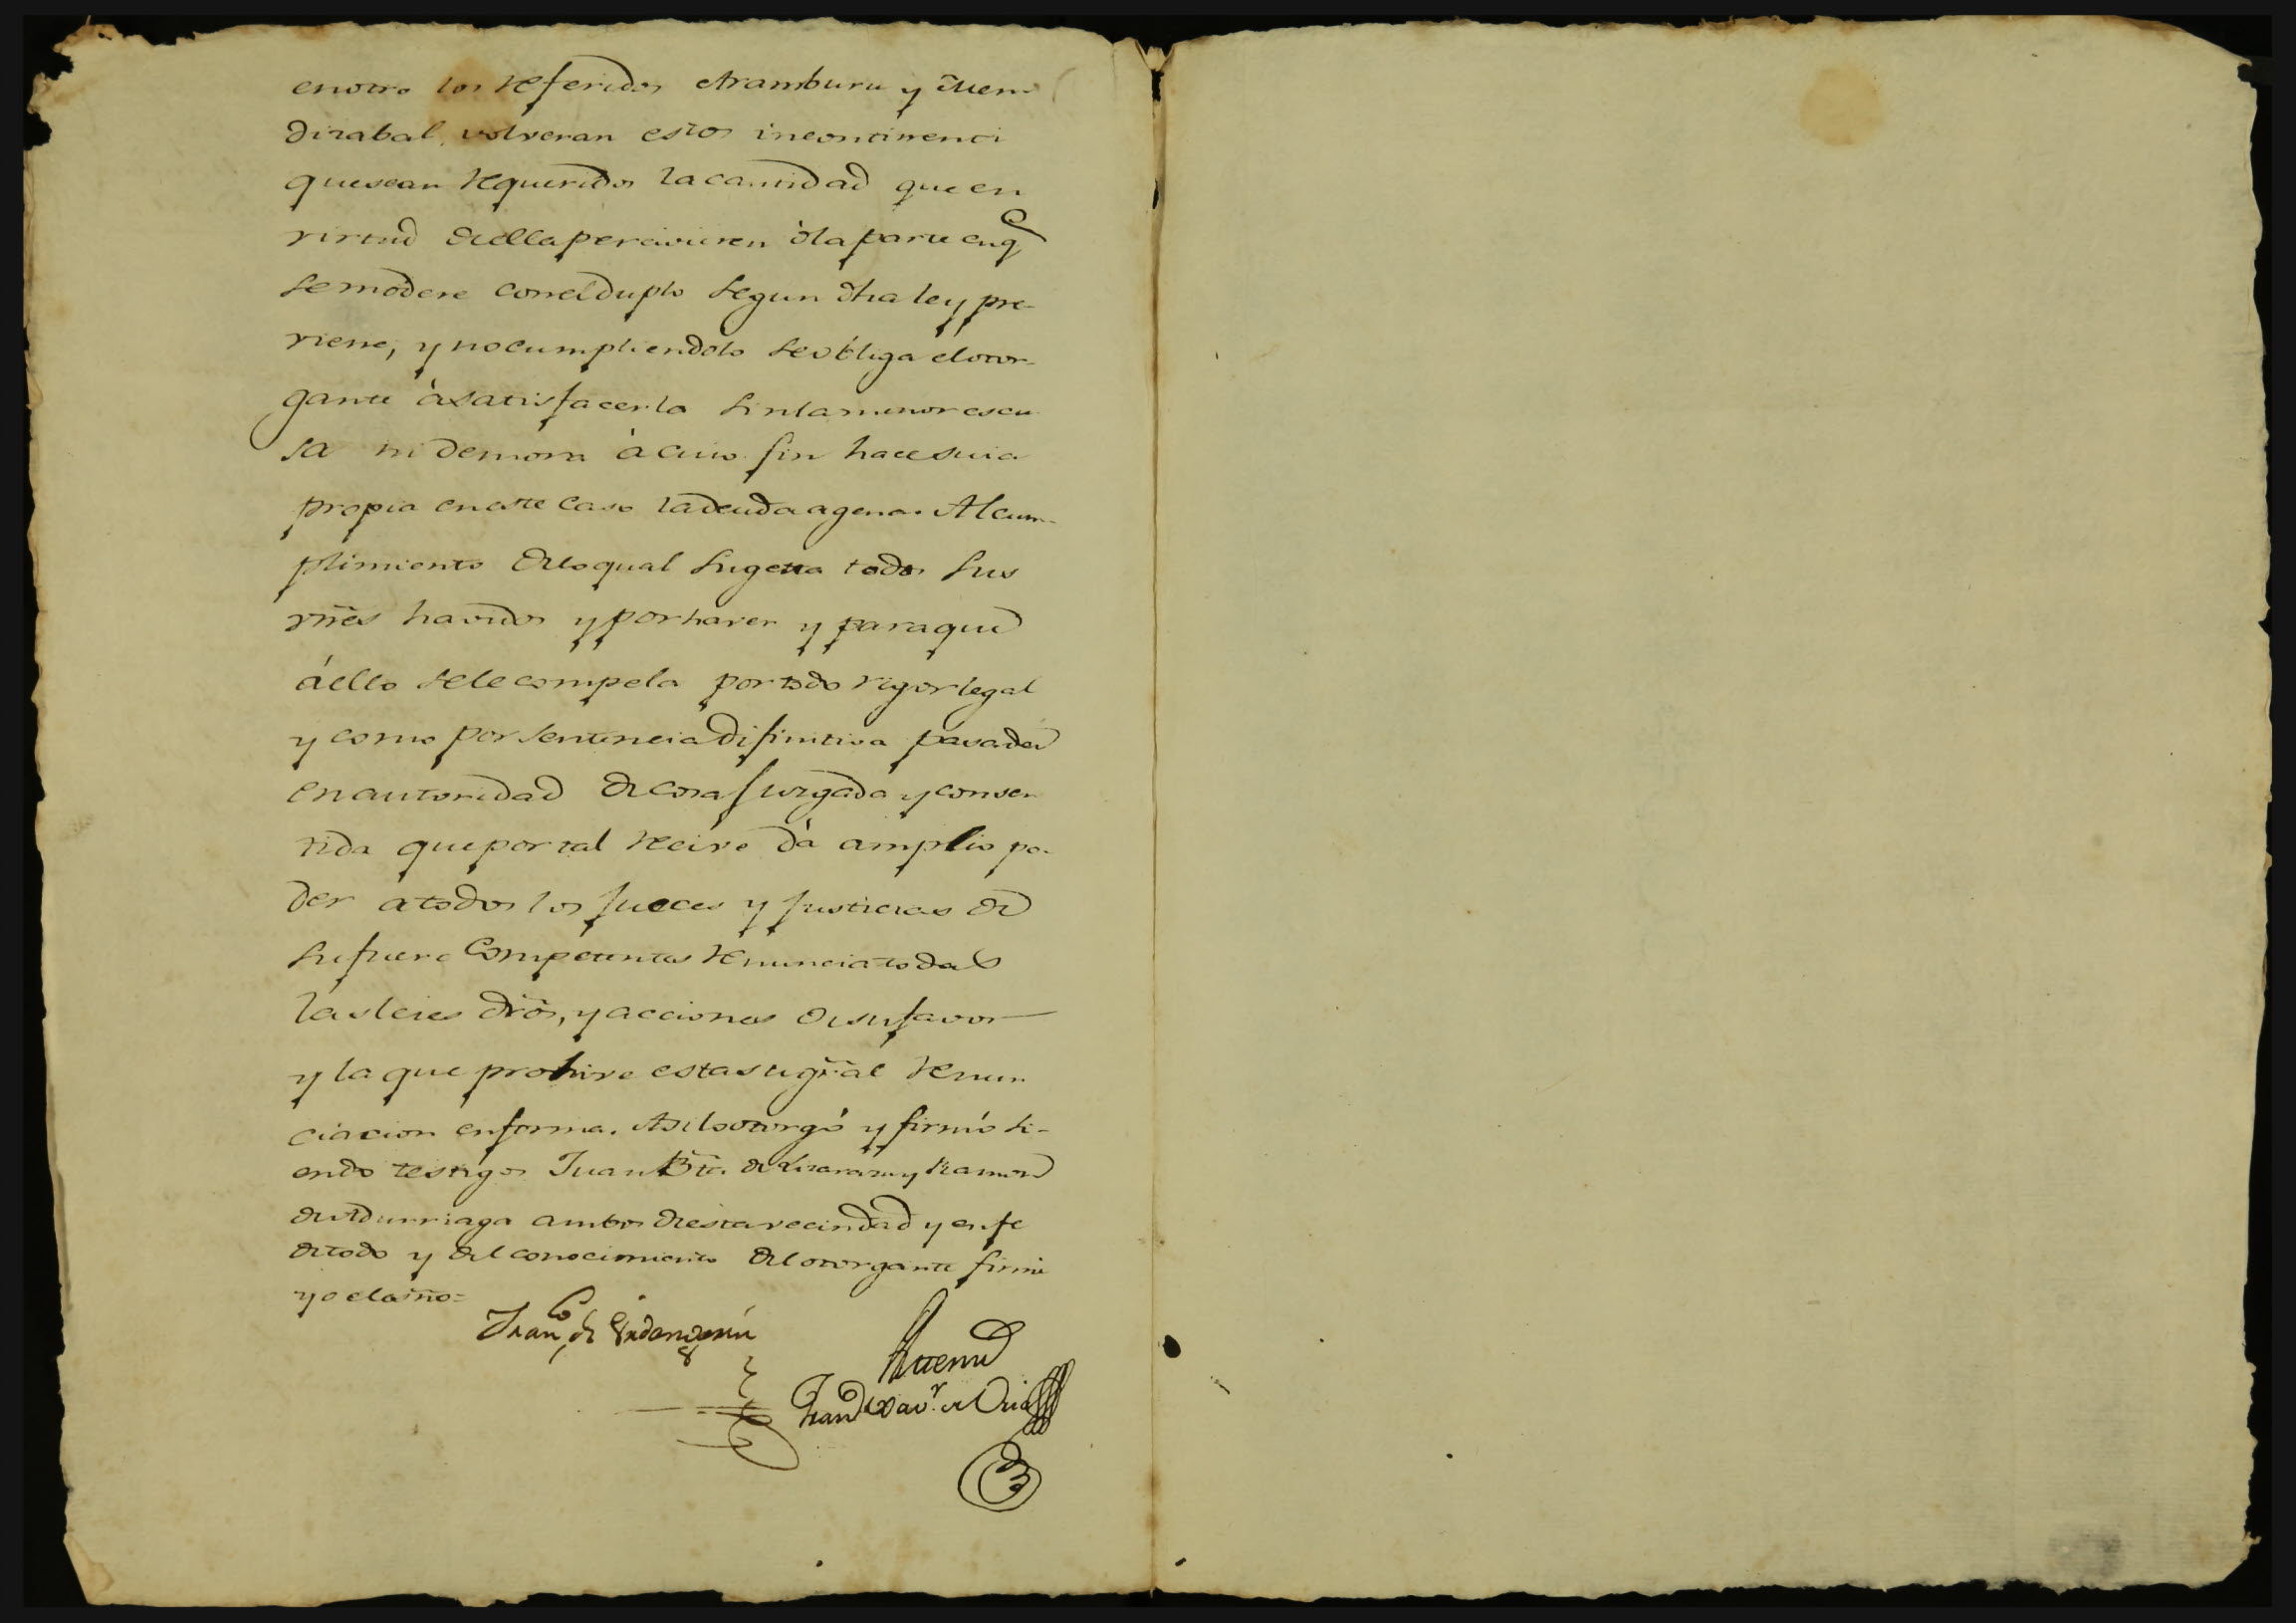 en otro los referidos Aramburu y Men-
dizabal, volveran estos incontinenti
que sean requeridos la cantidad que en
virtud de ella percivieren ò la parte en q.e
se modere con el duplo segun dha ley pre-
viene, y no cumpliendolo se obliga el otor-
gante à satisfacerla sin la menor escu
sa ni demora à cuio fin hace suia
propia en este caso la deuda agena. Al cum-
plimiento de lo qual sugeta todos sus
vnes havidos y por haver y para que
á ello se le compela por todo rigor legal
y como por sentencia difinitiva pasada
en autoridad de cosa juzgada y consen
tida que por tal recive dà amplio po-
der a todos los jueces y justicias de
su fuero competentes renuncia todas
las leies dros, y acciones de su favor
y la que prohive esta su gral renun
ciacion en forma. Asi lo otorgó y firmó si-
endo testigos Juan Bta. de Lizarazu y Ramon
de Adurriaga ambos de esta vecindad y en fe
de todo y del conocimiento del otorgante firmè
yo el essno=
Fran.co de
Ante mi
Fran.co Xav.r de Oria